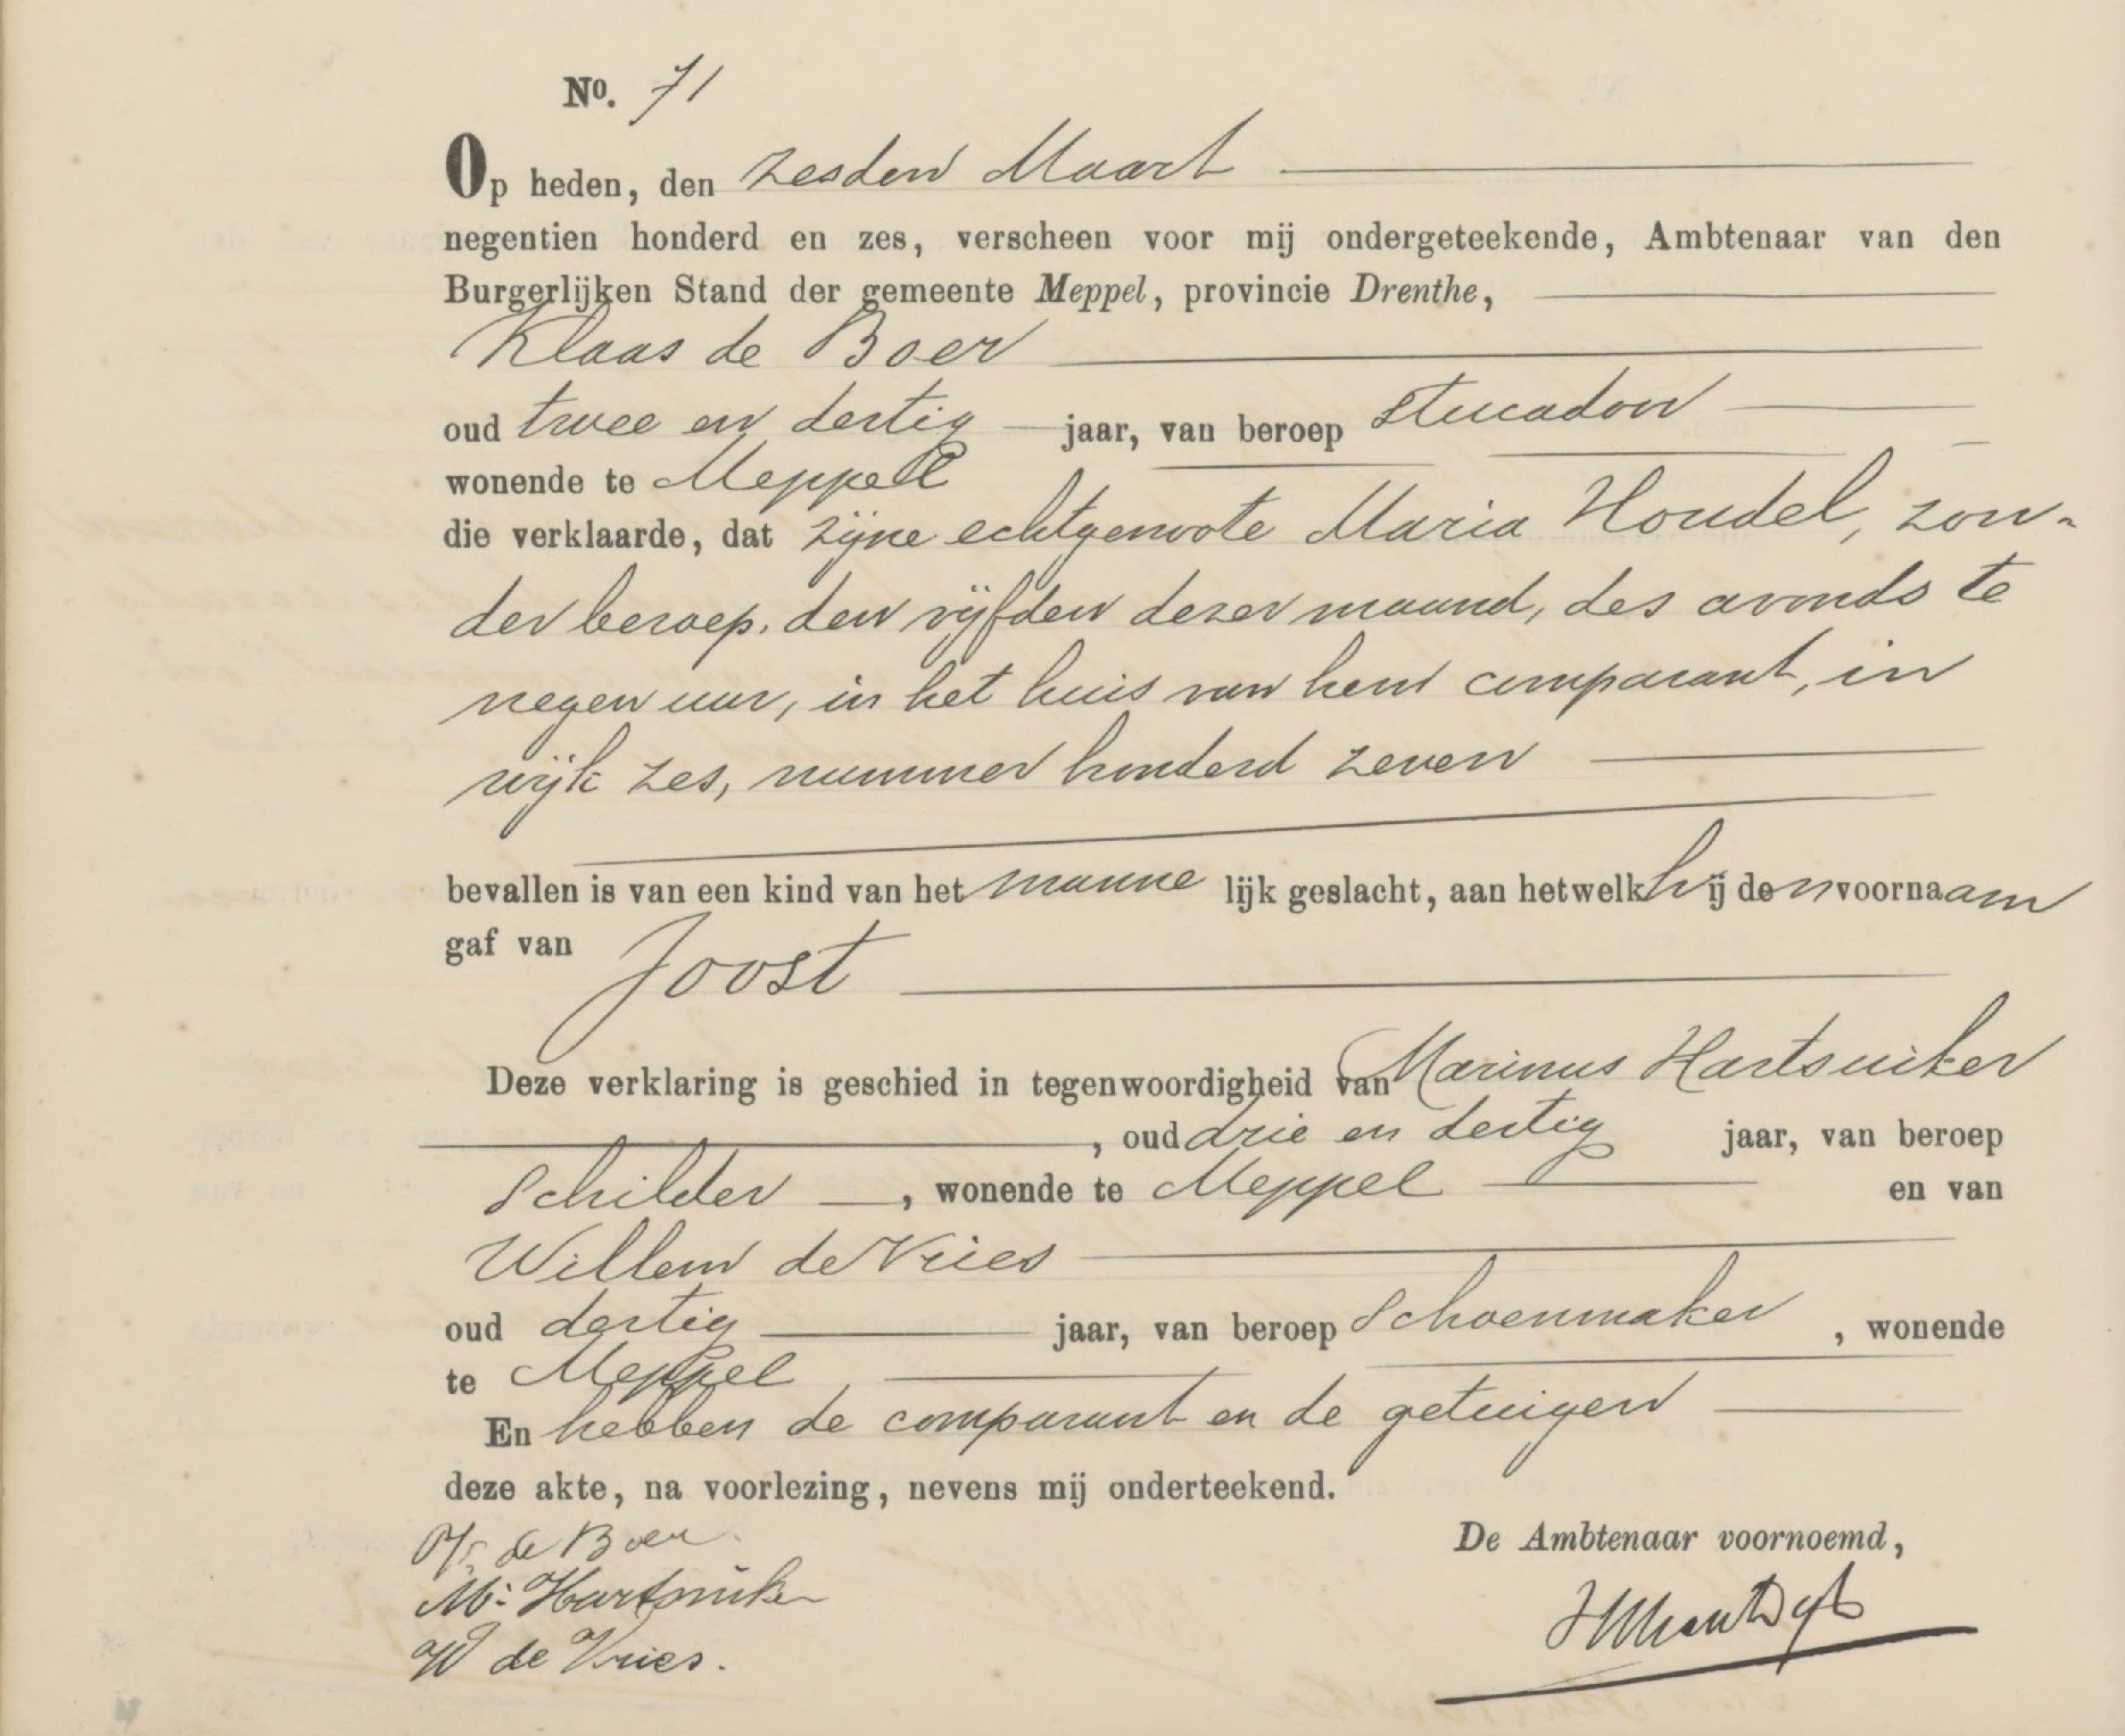 No. 71
Op heden, den zesden Maart
negentien honderd en zes, verscheen voor mij ondergeteekende, Ambtenaar van den
Burgerlijken Stand der gemeente Meppel, provincie Drenthe,
Klaas de Boer
oud twee en dertig jaar, van beroep stucadoor
wonende te Meppel
die verklaarde, dat zijne echtgenoote Maria Houdel, zon-
der beroep, den vijfden dezer maand, des avonds te
negen uur, in het huis van hem comparant, in
wijk zes, nummer honderd zeven
bevallen is van een kind van het mannelijk geslacht, aan hetwelk hij den voornaam
gaf van Joost
Deze verklaring is geschied in tegenwoordigheid van Marinus Hartsuiker
, oud drie en dertig jaar, van beroep
Schilder, wonende te Meppel en van
Willem de Vries
oud dertig jaar, van beroep Schoenmaker, wonende
te Meppel
En hebben de comparant en de getuigen
deze akte, na voorlezing, nevens mij onderteekend.
de Boer
De Ambtenaar voornoemd,
M. Hartsuiker
W de Vries.